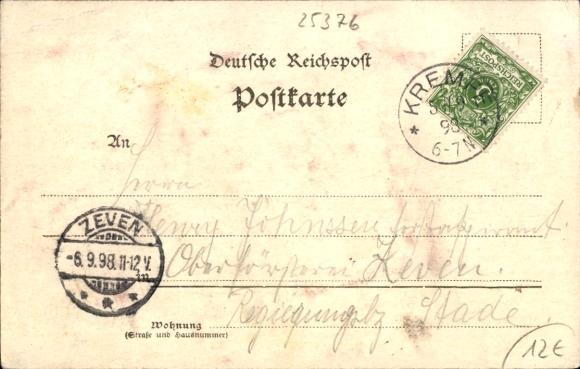 25376
Deutsche Reichspost
Postkarte
KREMPE
98
6-7N
An
Herrn
Henry Johnssen
Oberförsterei Zeven.
Regierungsbz Stade.
ZEVEN
-6.9.98.11-12V.
in
Wohnung
(Straße und Hausnummer)
12€